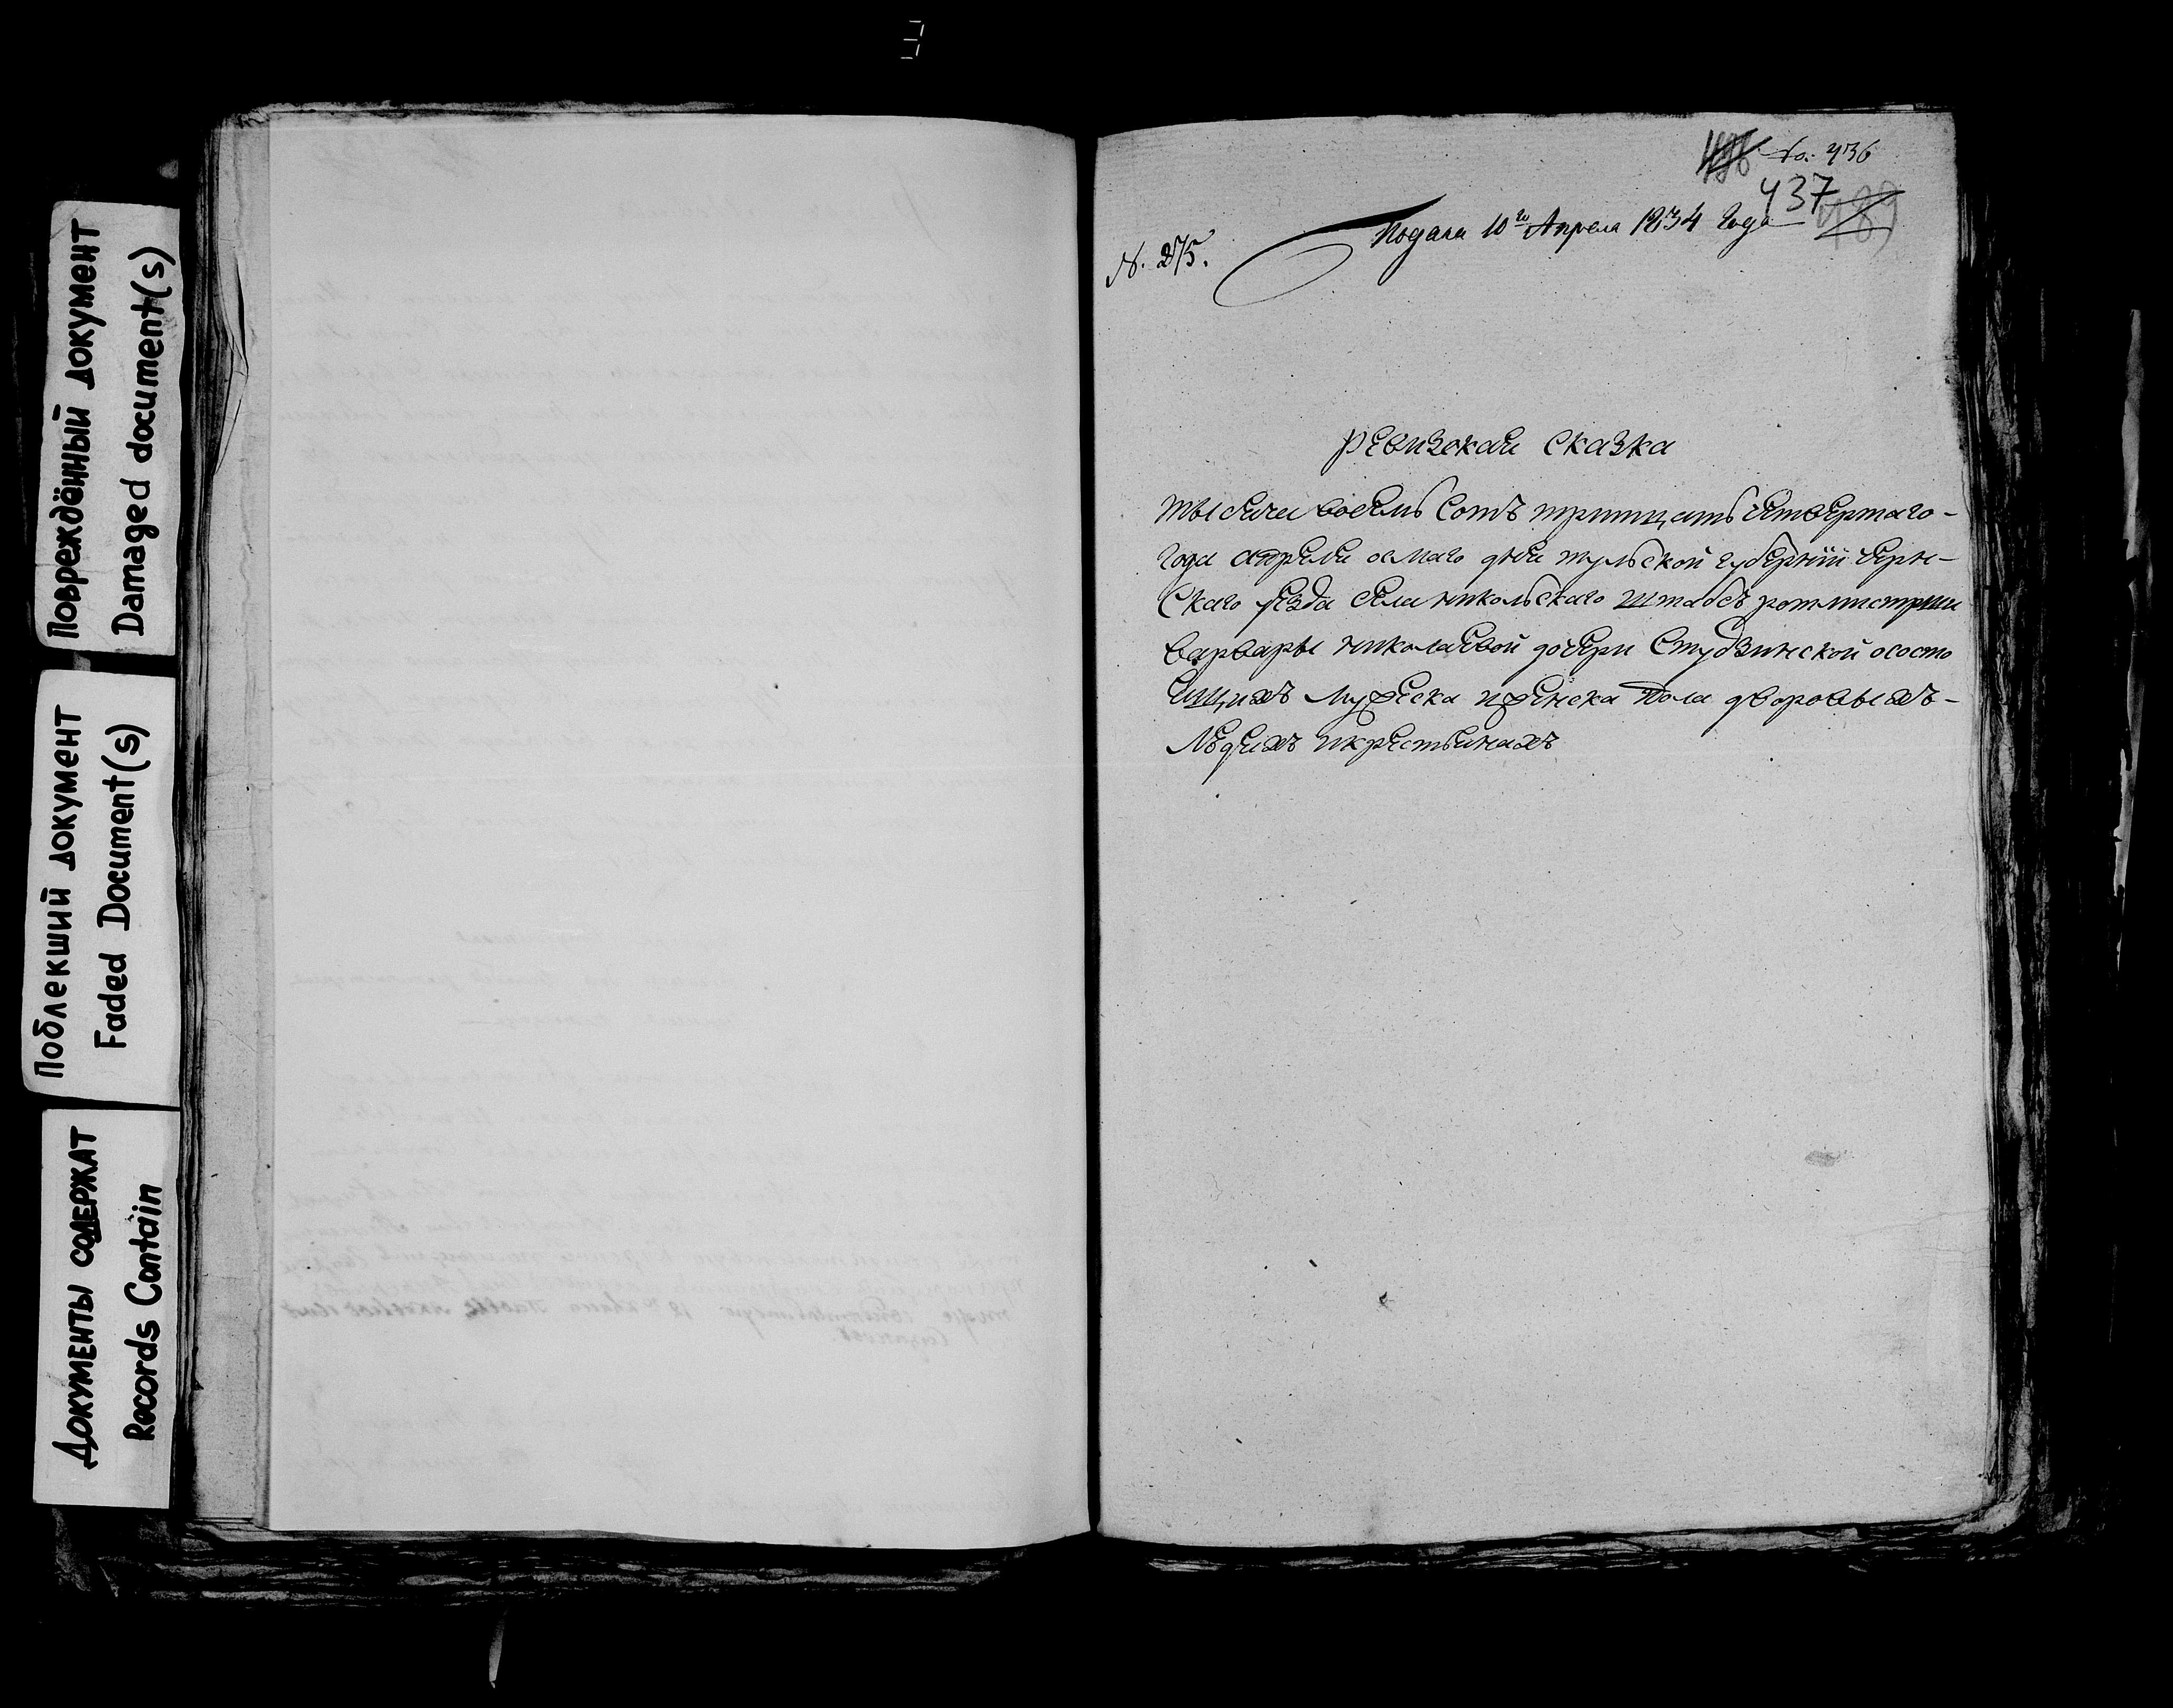 Повреждённый документ
Damaged document(s)
Поблекший документ
Faded Document(s)
Документы содержат
Records Contain
No. 436
437
Подана 10го Апреля 1834 года
N. 275.
ревизская сказка
тысяча восемь сотъ тритцать четвертаго-
года апреля осмаго дня тульской губернїи черн-
скаго уезда села никольскаго штабсъ ротмистрши
варвары николаевой дочери Студзинской осостo
ящихъ мужеска иженска пола дворовыхъ-
людяхъ икрестьянахъ